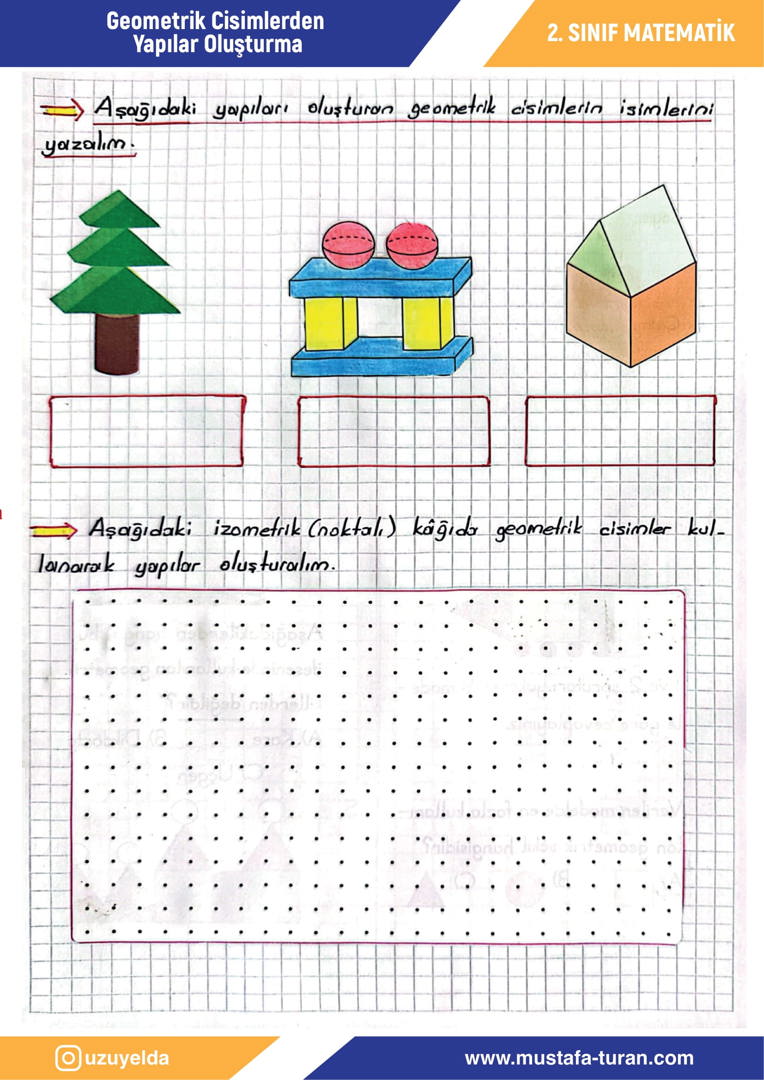 Geometrik Cisimlerden
Yapılar Oluşturma
2. SINIF MATEMATİK
Aşağıdaki yapıları oluşturan geometrik cisimlerin isimlerini
yazalım.
Aşağıdaki izometrik (noktalı) kâğıda geometrik cisimler kul-
lanarak yapılar oluşturalım.
uzuyelda
www.mustafa-turan.com